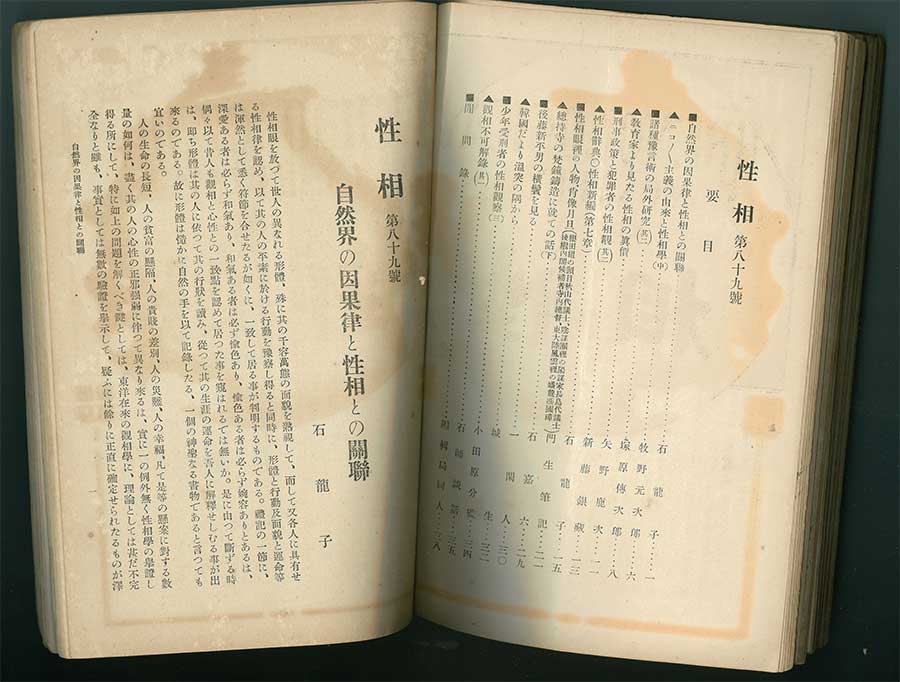 性相 第八十九號
要目
■自然界の因果律と性相との關聯…石龍子…一
▲ニコ〱主義の由來と性相學(中)…牧野元次郎…六
■諸種豫言術の局外研究(其二)…塚原傳次郎…八
▲教育家より見たる性相の眞價…矢野鹿次…一一
■刑事政策と犯罪者の性相觀(其二)…新藤銀藏…一三
▲性相辭典○性相新編(第七章)…石龍子…一五
■性相眼裡の人物、肖像月旦
▲總持寺の梵鐘鑄造に就ての話(下)…門生筆記…二一
■後藤新平男の橫鬢を見る…石嘉六…二九
▲韓國だより溫突の隅から…一閑人…三〇
■少年受刑者の性相觀察(三)…城生…三二
▲觀相不可解錄(其一)…小田原分監…三四
■問錄…石師談話…三五
編輯局同人…三八
性相 第八十九號
自然界の因果律と性相との關聯
石龍子
性相眼を放つて世人の異なれる形體、殊に其の千容萬態の面貌を熟視して、而して又各人に具有せ
る性相律を認め、以て其の人の平素に於ける行動を豫察し得ると同時に、形體と行動及面貌と運命等
は渾然として悉く符節を合せたるが如くに、一致して居る事が判明するものである。禮記の一節に、
深愛ある者は必らず和氣あり、和氣ある者は必ず愉色あり、愉色ある者は必らず婉容ありとあるは、
偶々以て昔人も觀相と心性との一致點を認めて居つた事を窺はれるでは無いか。是に由つて斷ずる時
は、卽ち形體は其の人に依つて其の行狀を讀み、從つて其の生涯の運命を吾人に解釋せしむる事が出
來るのである。故に形體は慥かに自然の手を以て記錄したる、一個の神聖なる書物であると言つても
宜いのである。
人の生命の長短、人の貧富の懸隔、人の貴賤の差別、人の災難、人の幸福、凡て是等の懸案に對する數
量の如何は、盡く其の人の心性の正邪强弱に伴つて異なり來るは、實に一の例外無く性相學の擧證し
得る所にして、特に如上の問題を解くべき鍵としては、東洋在來の觀相學に、理論としては甚だ不完
全なりと雖も、事實としては無數の驗證を擧示して、疑ふには餘りに正直に確定せられたるものが澤
自然界の因果律と性相との關聯
一